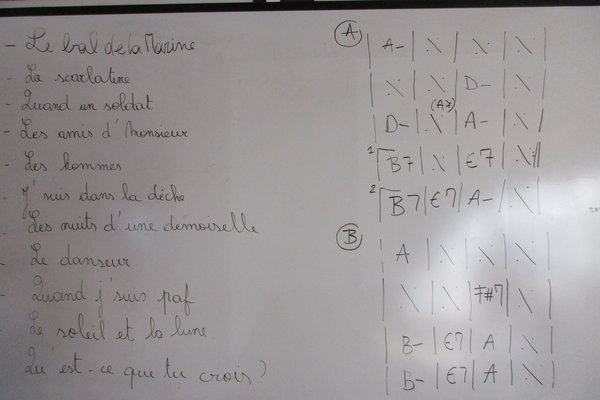 - Le bal de la Marine
- La scarlatine
- Quand un soldat
- Les amis d'Monsieur
- Les hommes
- J'suis dans la dèche
- Les nuits d'une demoiselle
- Le danseur
- Quand j'suis paf
- Le soleil et la lune
- Qu'est-ce que tu crois ?
A | A- | ٪ | ٪ | ٪ |
| ٪ | ٪ | D- | ٪ |
(A7)
| D- | ٪ | A- | ٪ |
1 | B7 | ٪ | E7 | ٪ :||
2 | B7 | E7 | A- | ٪ |
B | A | ٪ | ٪ | ٪ |
| ٪ | ٪ | F#7 | ٪ |
| B- | E7 | A | ٪ |
| B- | E7 | A | ٪ |